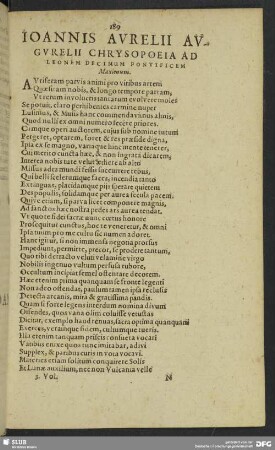 189
IOANNIS AVRELII AV-
GVRELII CHRYSOPOEIA AD
LEONEM DECIMVM PONTIFICEM
Maximum.
AVriferam parvis animi pro viribus artem
Quæsitam nobis, & longo tempore partam,
Ut rerum involucris tantarum evolvere
Se potuit, claro perhibentes carmine nuper
Lusimus, & Musis hanc commendavimus almis,
Quod nulli ex omni numero fecere priores.
Cumque operi auctorem, cujus sub nomine tutum
Pergeret, optarem, foret & res præside digna,
Ipsa ex se magno, variaque hinc mente teneret,
Cui merito cuncta hæc, & non ingrata dicarem;
Interea nobis tute velut æthere ab alto
Missus ades mundi fessis succurrere rebus,
Qui belli scelerumque faces, incendia tanto
Extinguas, placidamque piis sperare quietem
Des populis, solidamque per aurea secula pacem.
Quive etiam, si parva licet componere magnis,
Ad sanctos hæc nostra pedes ars aurea tendat.
Ut quo te sidei sacræ nunc cursus honore
Prosequitur cunctus, hoc te veneretur, & omni
Ipsa suum pro me cultu sic numen adoret.
Hanc igitur, si non immensa negotia prorsus
Impediunt, permitte, precor, se prodere tantum,
Quo tibi detracto velut velamine virgo
Nobili ingenuo vultum perfusa rubore,
Occultum incipiat semel ostentare decorem.
Hæc etenim prima quanquam se fronte legenti
Non adeo ostendat, paulum tamen ipsa reclusis
Detecta arcanis, mira & gratissima pandis.
Quam si forte legens interdum nomina divum
Offendes, quos vana olim coluisse vetustas
Dicitur, exemplo haud renuas, sacra optima quanquam
Exerces, verumque fidem, cultumque tueris.
Illa etenim tanquam priscis consueta vocari
Vatibus
Supplex, & patribus curis in vota vocavi.
Materies etiam solitum conquirere Solis
Et Lunæ auxilium, nec non Vulcania velle
3. Vol.
N
SLUB
DFG